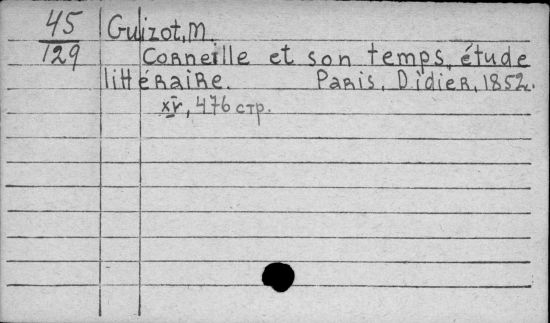 45
129
Guizot, M.
Corneille et son temps, étude
littéraire. Paris, Didier, 1852.
xv, 476 стр.